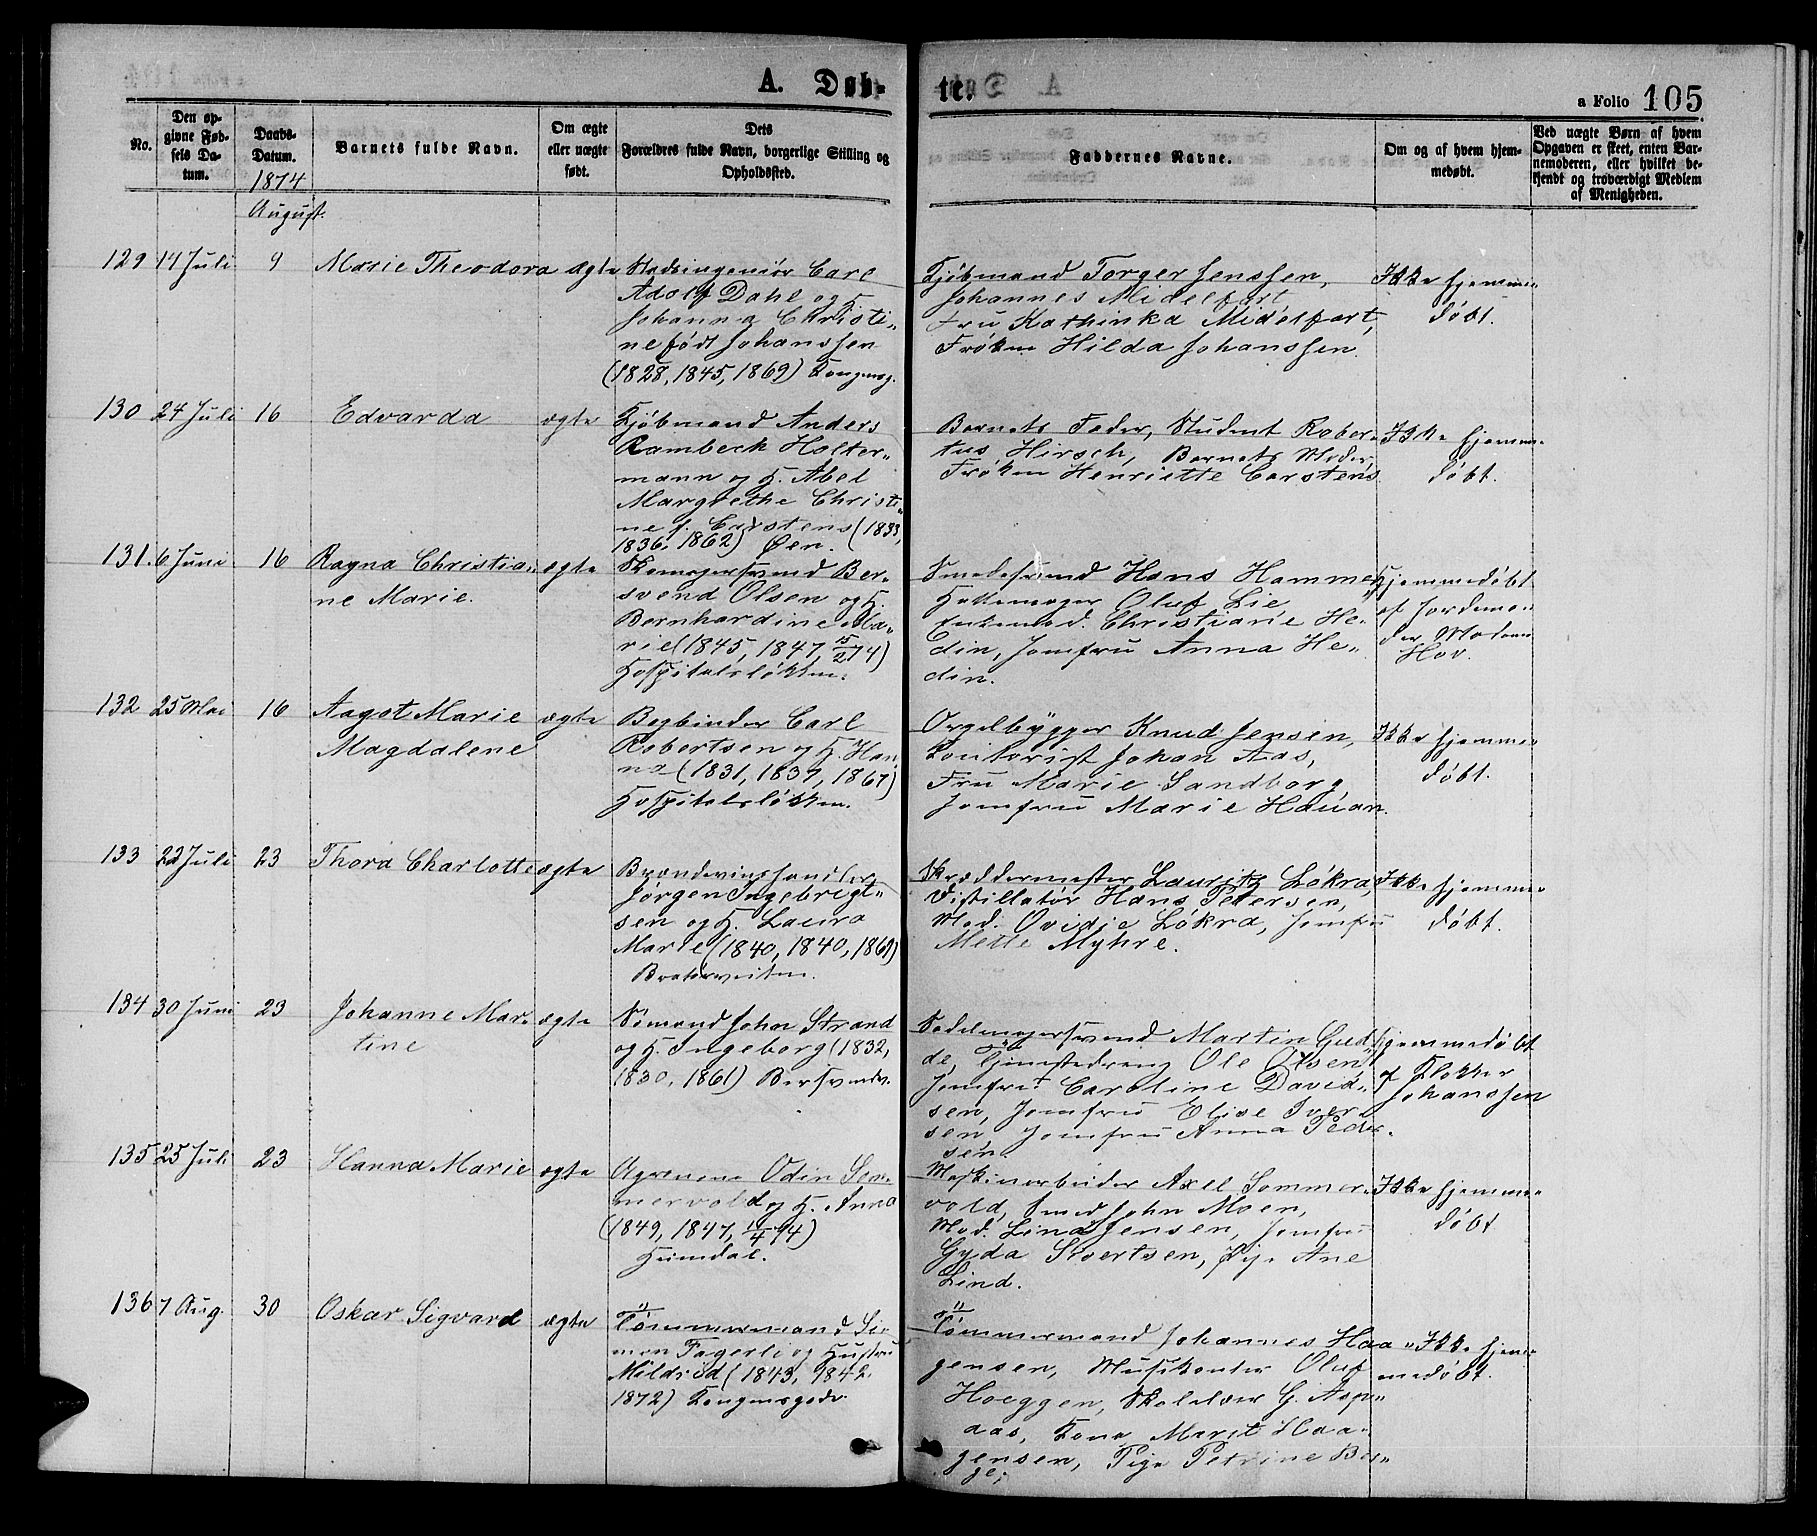 A. Døb-
te.
a Folio 105
No.
Den op-
givne Fød-
sels Da-
tum.
Daabs-
Datum.
1874
Barnets fulde Navn.
Om ægte
eller uægte
født.
Dets
Forældres fulde Navn, borgerlige Stilling og
Opholdssted.
Faddernes Navne.
Om og af hvem hjem-
medøbt.
Ved uægte Børn af hvem
Opgaven er skeet, enten Bar-
nemoderen, eller hvilket be-
kjendt og troværdigt Medlem
af Menigheden.
August.
129 14 Juli 9 Marie Theodora ægte
Stadsingeniör Carl
Adolf Dahl og H.
Johanna Christi-
ne född Johanssen
(1828, 1845, 1869) Kongensg.
Kjöbmand Torger Jenssen,
Johannes Midelfart,
Fru Kathinka Midelfart,
Fröken Hilda Johanssen.
Ikke hjemme-
döbt.
130 24 Juli 16 Edvarda ægte
Kjöbmand Anders
Rambeck Holter-
mann og H. Abel
Margrethe Christi-
ne f. Carstens (1833,
1836, 1862) Øen.
Barnets Fader, Student Rober-
tus Hirsch, Barnets Moder,
Fröken Henriette Carstens
Ikke hjemme-
döbt.
131. 6 Juni 16 Ragna Christia-
ne Marie. ægte
Skomagersvend Ber-
svend Olsen og H.
Bernhardine Ma-
rie (1845, 1847, 15/2 74)
Hospitalslökken.
Smedesvend Hans Hammer,
Hattemager Oluf Lie,
Enkemad. Christiane He-
din, Jomfru Anna He-
din.
Hjemmedöbt
af Jordemo-
der Madam
Hov.
132 25 Mai 16 Aagot Marie
Magdalene ægte
Bogbinder Carl
Robertsen og H. Han-
na (1831, 1837, 1867)
Hospitalslökken.
Orgelbygger Knud Jensen,
Kontorist Johan Aas,
Fru Marie Sandborg,
Jomfru Marie Hauan.
Ikke hjemme-
döbt.
133 22 Juli 23 Thora Charlotte ægte
Brændevinshandler
Jörgen Ingebrigt-
sen og H. Laura
Marie (1840, 1840, 1861)
Bratörveiten.
Skræddermester Lauritz Lökra,
Distillatör Hans Petersen,
Mad. Ovidie Lökra, Jomfru
Mette Myhre.
Ikke hjemme-
döbt.
134 30 Juni 23 Johanne Mar-
tine ægte
Sömand John Strand
og H. Ingeborg (1832,
1830, 1861) Bersvendv.
Sadelmagersvend Martin Gud-
de, Tjenestedreng Ole Olsen,
Jomfru Caroline David-
sen, Jomfru Elise Iver-
sen, Jomfru Anna Peder-
sen.
Hjemmedöbt
af Klokker
Johanssen
135 25 Juli 23 Hanna Marie ægte
Odin Som-
mervold og H. Anna
(1849, 1847, 74)
Heimdal.
Maskinarbeider Axel Sommer-
vold, Smed John Moen,
Mad. Lina Jensen, Jomfru
Gyda Sivertsen, Pige Ane
Lind.
Ikke hjemme-
döbt
136 7 Aug. 30 Oskar Sigvard ægte
Tömmermand Si-
mon Fagerli og Hustru
Mildrid (1843, 1842,
1872) Kongensgade.
Tömmermand Johannes Haa-
gensen, Musikanter Oluf
Hoeggen, Skolelærer G. Asp-
aas, Kone Marit Haa-
gensen, Pige Petrine Ber-
ge,
Ikke hjem-
medöbt.